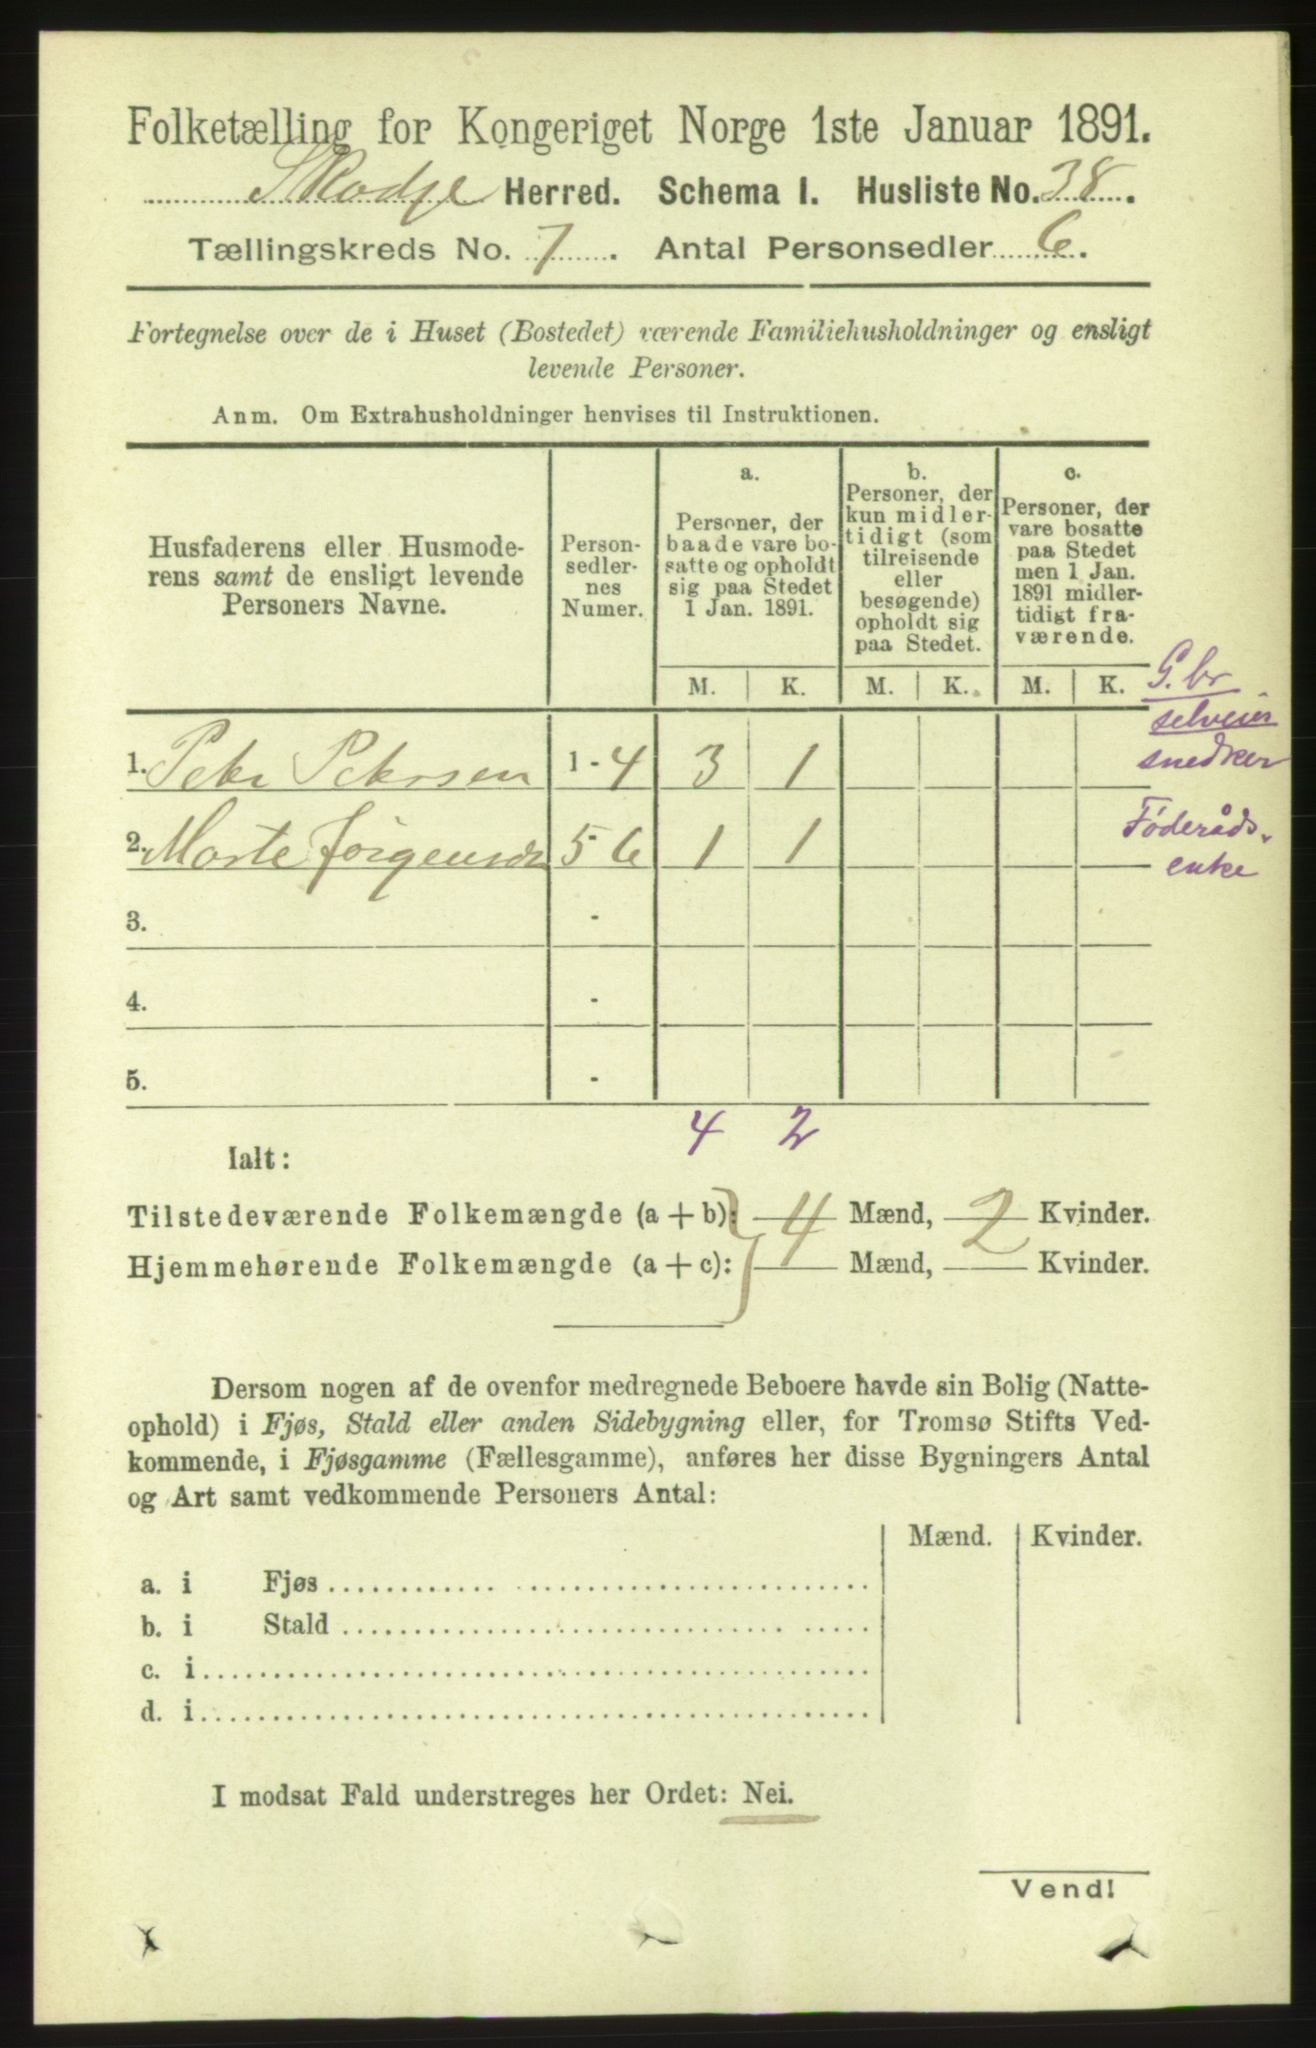 Folketælling for Kongeriget Norge 1ste Januar 1891.
Skodje Herred. Schema I. Husliste No. 38.
Tællingskreds No. 7. Antal Personsedler 6.
Fortegnelse over de i Huset (Bostedet) værende Familiehusholdninger og ensligt
levende Personer.
Anm. Om Extrahusholdninger henvises til Instruktionen.
Husfaderens eller Husmode-
rens samt de ensligt levende
Personers Navne.
Person-
sedler-
nes
Numer.
a.
Personer, der
baade vare bo-
satte og opholdt
sig paa Stedet
1 Jan. 1891.
b.
Personer, der
kun midler-
tidigt (som
tilreisende
eller
besøgende)
opholdt sig
paa Stedet.
c.
Personer, der
vare bosatte
paa Stedet
men 1 Jan.
1891 midler-
tidigt fra-
værende.
M. K. M. K. M. K.
G.br
selveier
snedker
1. Peter Petersen 1 - 4 3 1
Føderåds-
enke
2. Marte Jørgensdr 5 - 6 1 1
3. -
4. -
5. -
4 2
Ialt:
Tilstedeværende Folkemængde (a + b): 4 Mænd, 2 Kvinder.
Hjemmehørende Folkemængde (a + c): Mænd, Kvinder.
Dersom nogen af de ovenfor medregnede Beboere havde sin Bolig (Natte-
ophold) i Fjøs, Stald eller anden Sidebygning eller, for Tromsø Stifts Ved-
kommende, i Fjøsgamme (Fællesgamme), anføres her disse Bygningers Antal
og Art samt vedkommende Personers Antal:
Mænd. Kvinder.
a. i Fjøs
b. i Stald
c. i
d. i
I modsat Fald understreges her Ordet: Nei.
Vend!